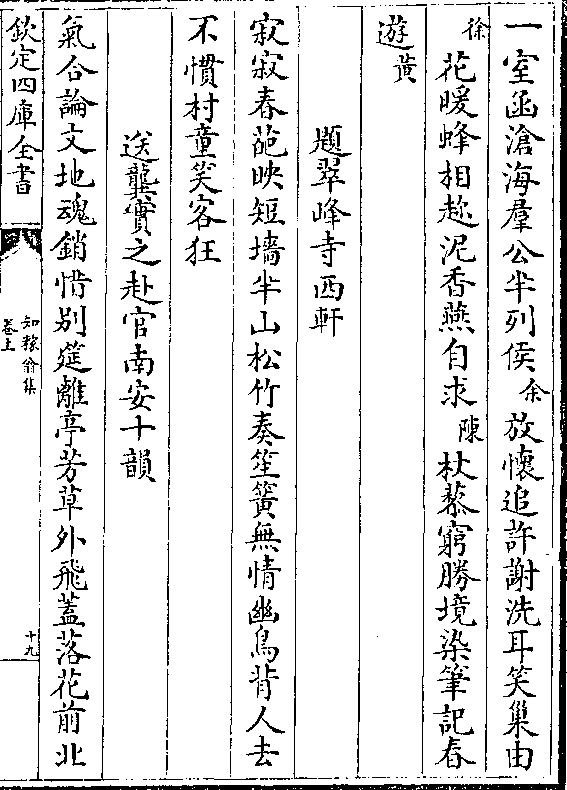 一室函滄海羣公半列侯余放懷追許謝洗耳笑巢由
徐花暖蜂相趂泥香燕自求陳杖藜窮勝境染筆記春
遊黃
題翠峰寺西軒
寂寂春葩映短墻半山松竹奏笙簧無情幽鳥背人去
不慣村童笑客狂
送龔實之赴官南安十韻
氣合論文地魂銷惜别筵離亭芳草外飛蓋落花前北
欽定四庫全書
知稼翁集
卷上
十九